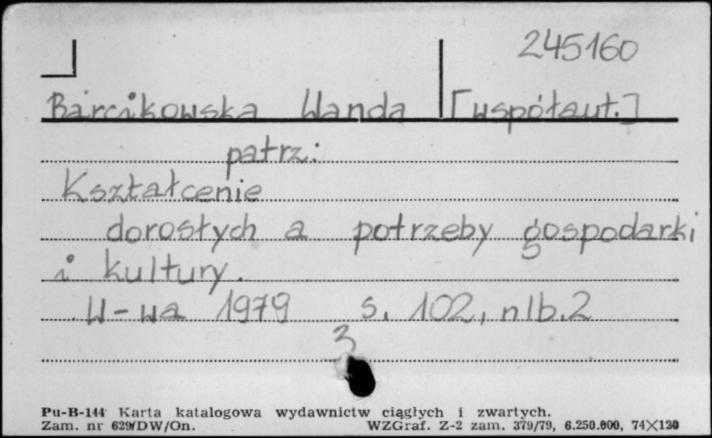 245160
Barcikowska Wanda [współaut.]
patrz:
Kształcenie
dorosłych a potrzeby gospodarki
i kultury.
W-wa 1979 s. 102, nlb. 2
3
Pu-B-144 Karta katalogowa wydawnictw ciągłych i zwartych.
Zam. nr 629/DW/On. WZGraf. Z-2 zam. 379/79, 6.250.000, 74×120